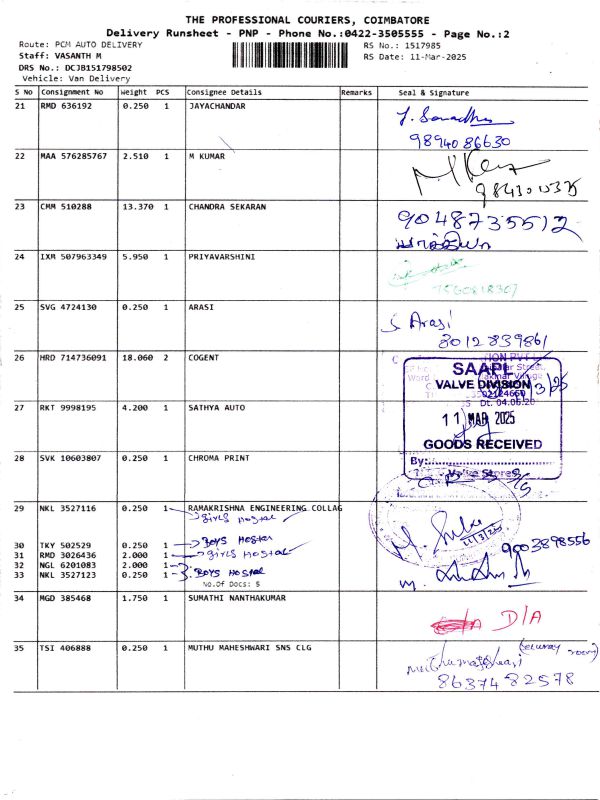 THE PROFESSIONAL COURIERS, COIMBATORE
Delivery Runsheet - PNP - Phone No.:0422-3505555 - Page No.:2
Route: PCM AUTO DELIVERY
RS No.: 1517985
Staff: VASANTH M
RS Date: 11-Mar-2025
DRS No.: DCJB151798502
Vehicle: Van Delivery
S No Consignment No Weight PCS Consignee Details Remarks Seal & Signature
21 RMD 636192 0.250 1 JAYACHANDAR
9894086630
22 MAA 576285767 2.510 1 M KUMAR
23 CMM 510288 13.370 1 CHANDRA SEKARAN
9048735512
24 IXM 507963349 5.950 1 PRIYAVARSHINI
25 SVG 4724130 0.250 1 ARASI
S Arasi
8012839861
26 HRD 714736091 18.060 2 COGENT
SAAPL
VALVE DIVISION
27 RKT 9998195 4.200 1 SATHYA AUTO
11 MAR 2025
GOODS RECEIVED
28 SVK 10603807 0.250 1 CHROMA PRINT
By:
Valve Stores
29 NKL 3527116 0.250 1 RAMAKRISHNA ENGINEERING COLLAG
Girls Hostal
30 TKY 502529 0.250 1 Boys Hostal
31 RMD 3026436 2.000 1 Girls Hostal
9003898556
32 NGL 6201083 2.000 1
33 NKL 3527123 0.250 1 Boys Hostal
No.Of Docs: 5
34 MGD 385468 1.750 1 SUMATHI NANTHAKUMAR
D/A
35 TSI 406888 0.250 1 MUTHU MAHESHWARI SNS CLG
8637482578